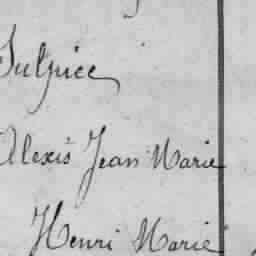 Sulpice
Alexis Jean Marie
Henri Marie